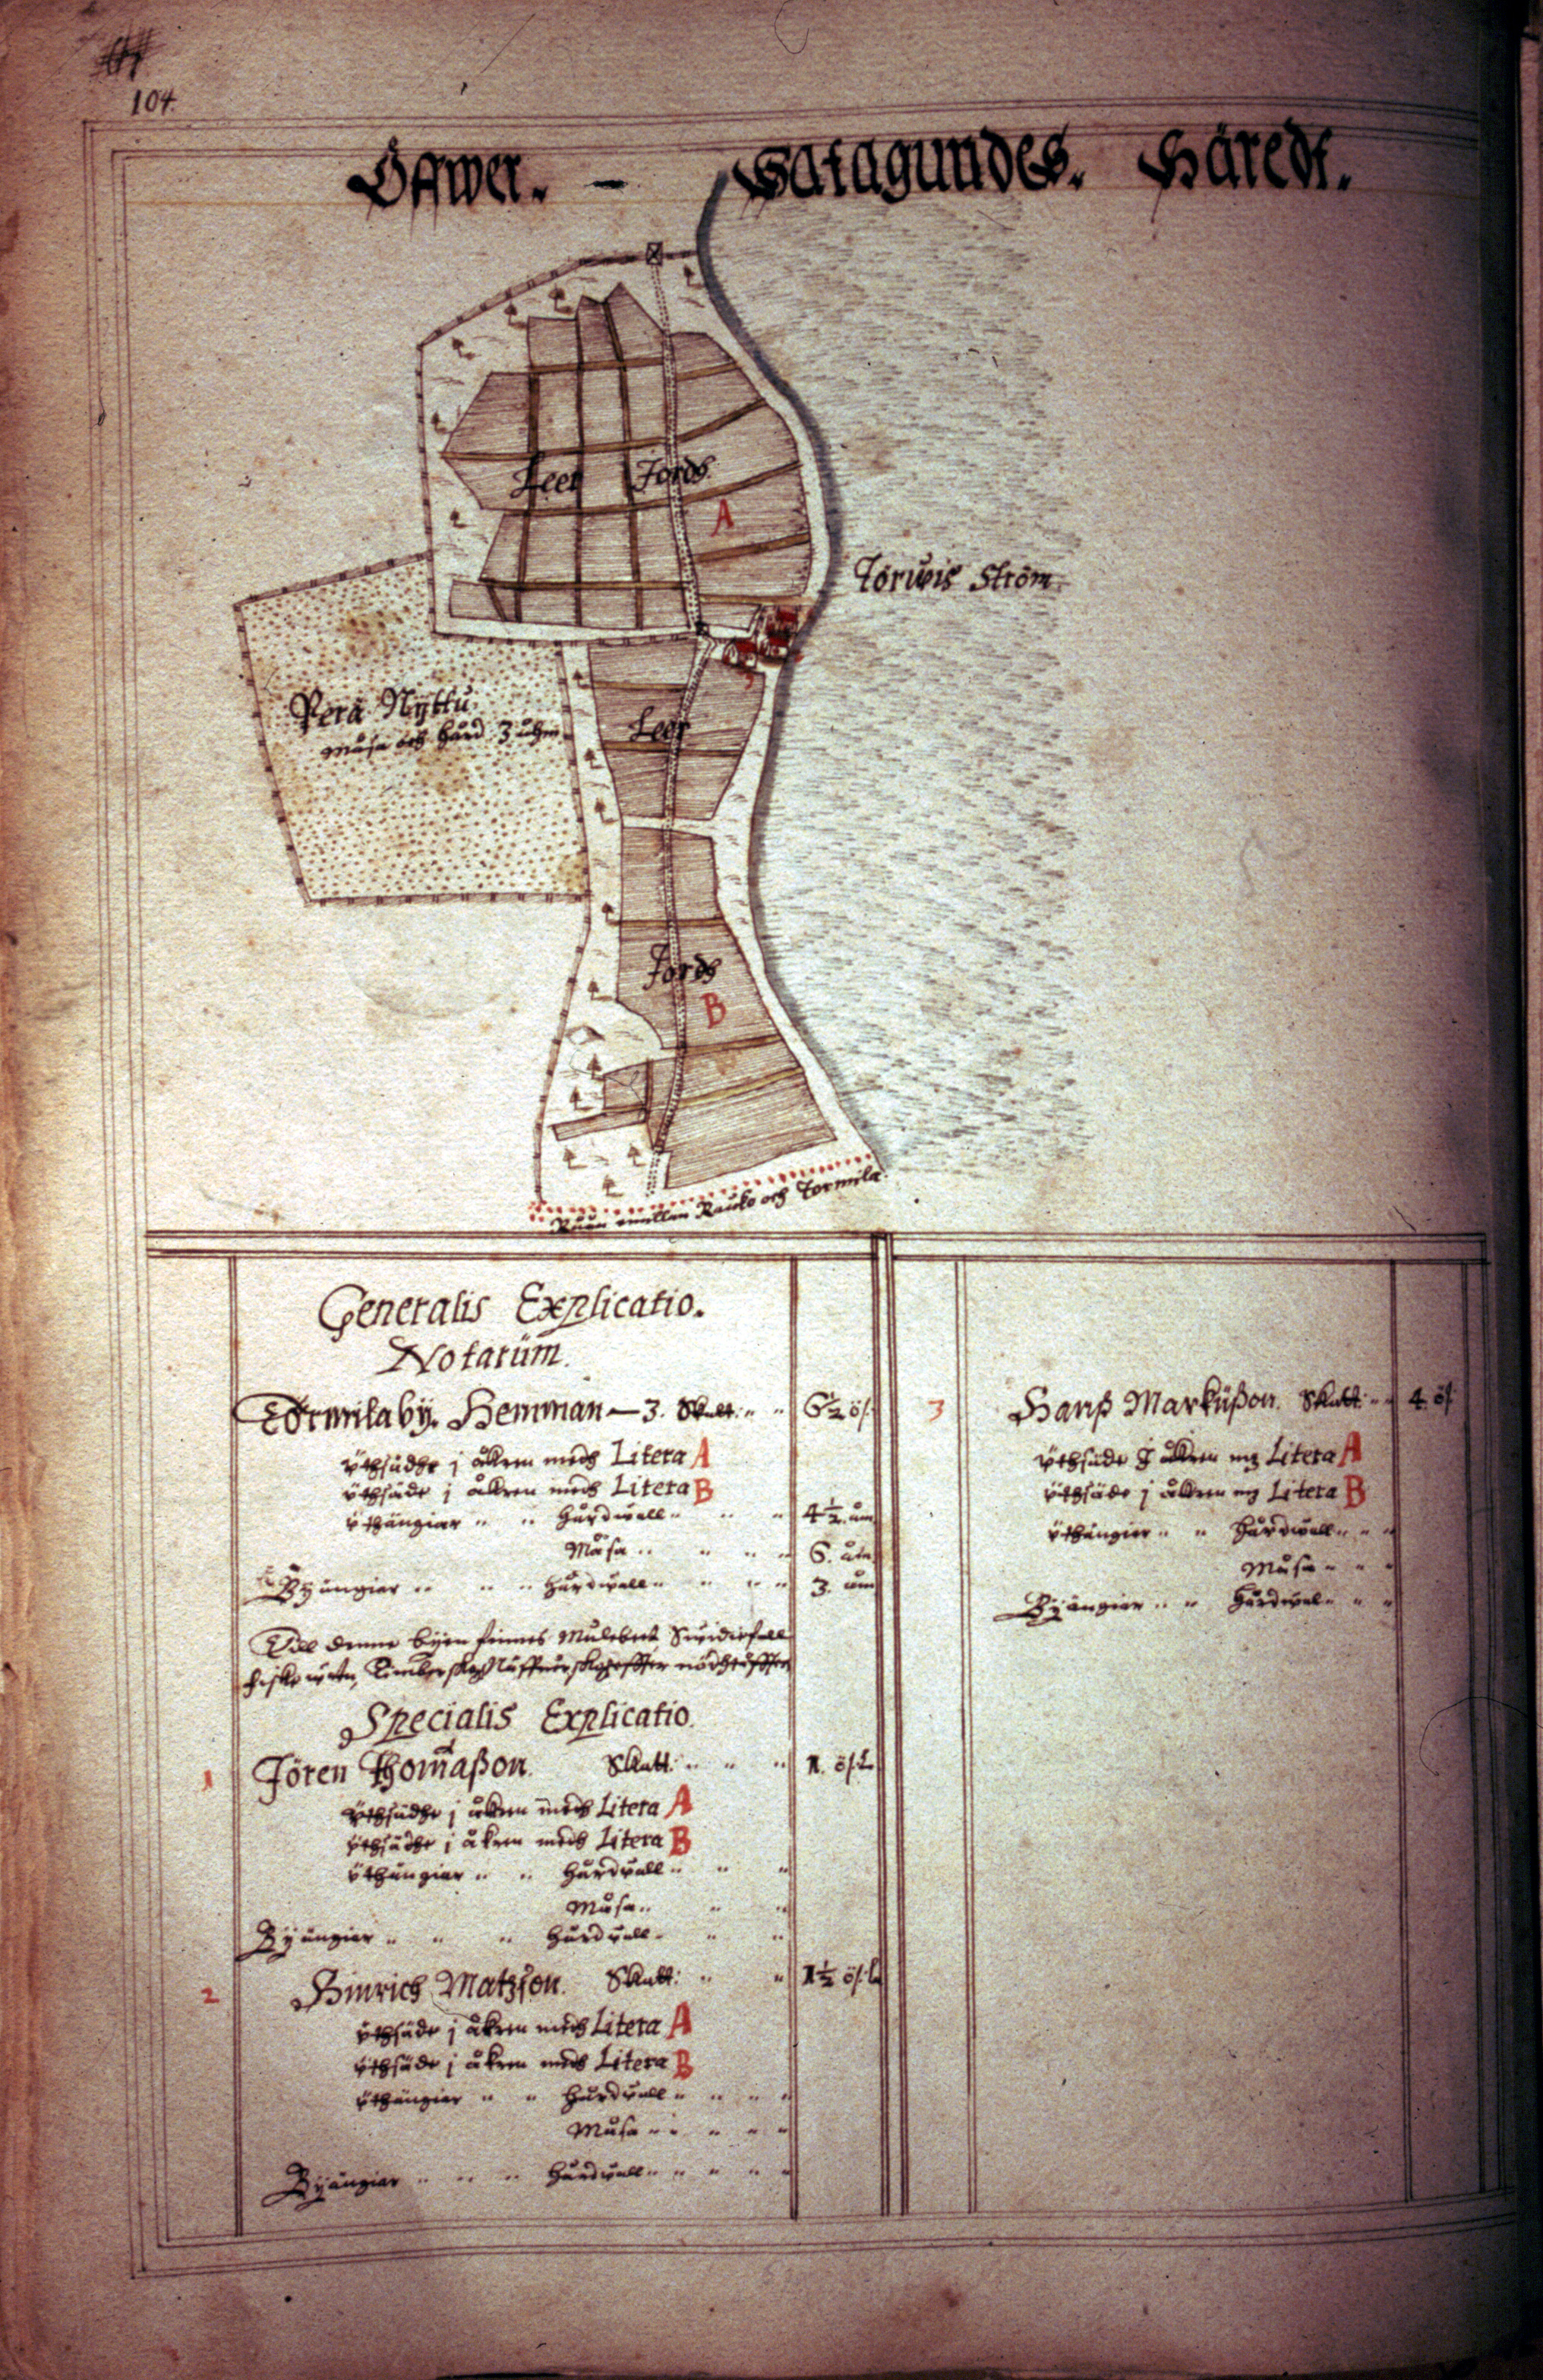 104.
Öffwer. — Satagundes. Häredt.
Leer Jords
A
Töruis Ström
Perä Nÿttu
måsa och hård 3 åhm
Leer
3
Jords
B
Råån emellan Rauko och Tormila
Generalis Explicatio.
Notarüm.
Tormilabÿ. Hemman — 3. Skatt: 6½ ös:
Vthsädhe j åkren medh Litera A
Vthsäde j åkren medh Litera B
Vthängiar " " hårdwall " " " 4½. åm
Måsa " " " " 6. åm
Bÿ ängiar " " " hårdwall " " " " 3. åm
Till denne bÿen finnes Mulebeet Swidiefall
fiske
Specialis Explicatio.
1 Jören Thomaßon. Skatt: " " " 1. ös:
Vthsädhe j åkren medh Litera A
Vthsädhe j åkren medh Litera B
Vthängiar " " hårdvall " " "
Måsa " " "
Bÿ ängiar " " " hårdvall " " "
2 Hinrich Matzson. Skatt: " " 1½ ös:
Vthsäde j åkren medh Litera A
Vthsäde j åkren medh Litera B
Vthängiar " " hårdvall " " " "
Måsa " " " " "
Bÿängiar " " " hårdvall " " " " "
3 Hanß Markußon. Skatt: " " 4. ös:
Vthsäde j åkren mz Litera A
Vthsäde j åkren mz Litera B
Vthängier " " hårdwall " " "
Måsa " " "
Bÿängier " " hårdwal " " "